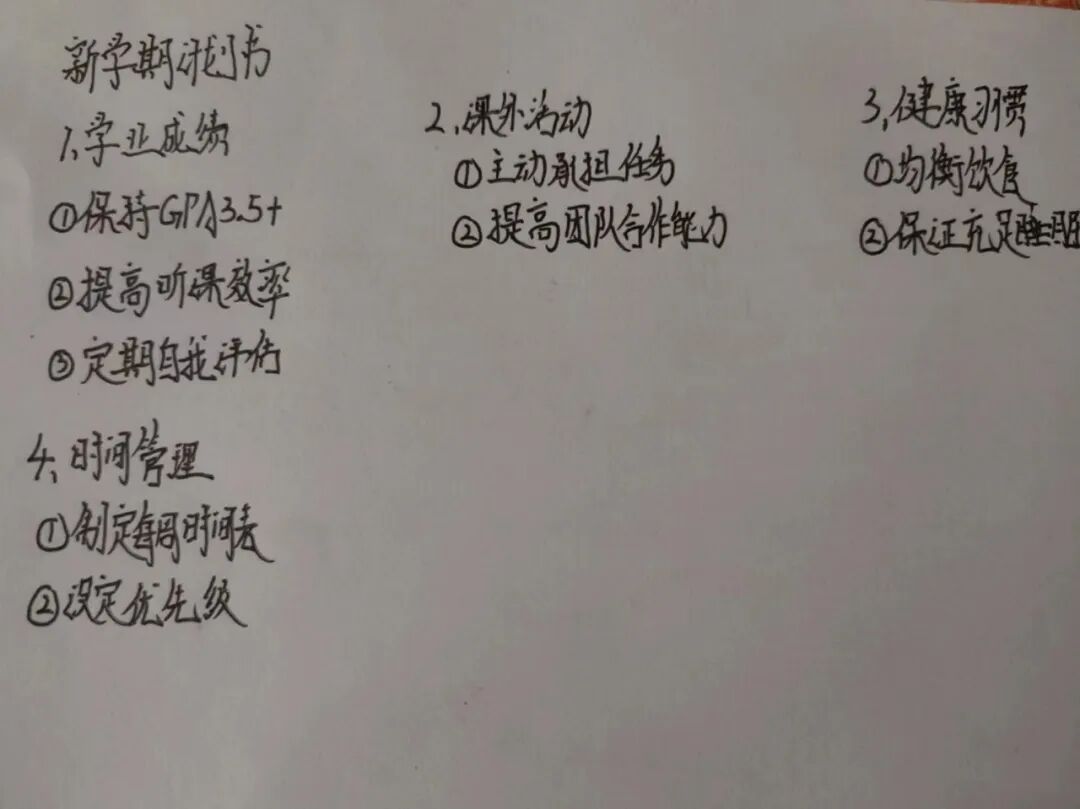 新学期计划书
1、学业成绩
①保持GPA3.5+
②提高听课效率
③定期自我评估
2、课外活动
①主动承担任务
②提高团队合作能力
3、健康习惯
①均衡饮食
②保证充足睡眠
4、时间管理
①制定每周时间表
②设定优先级